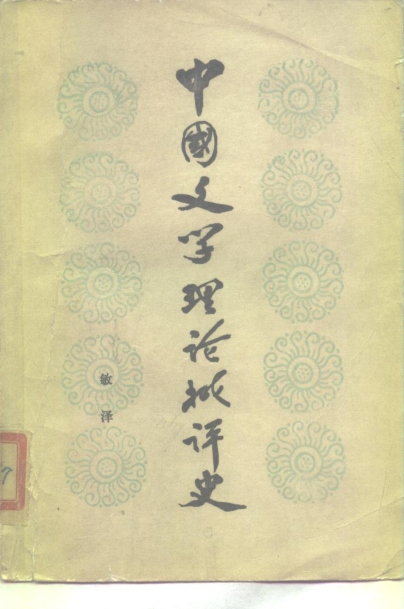 中國文学理论批评史
敏泽
7